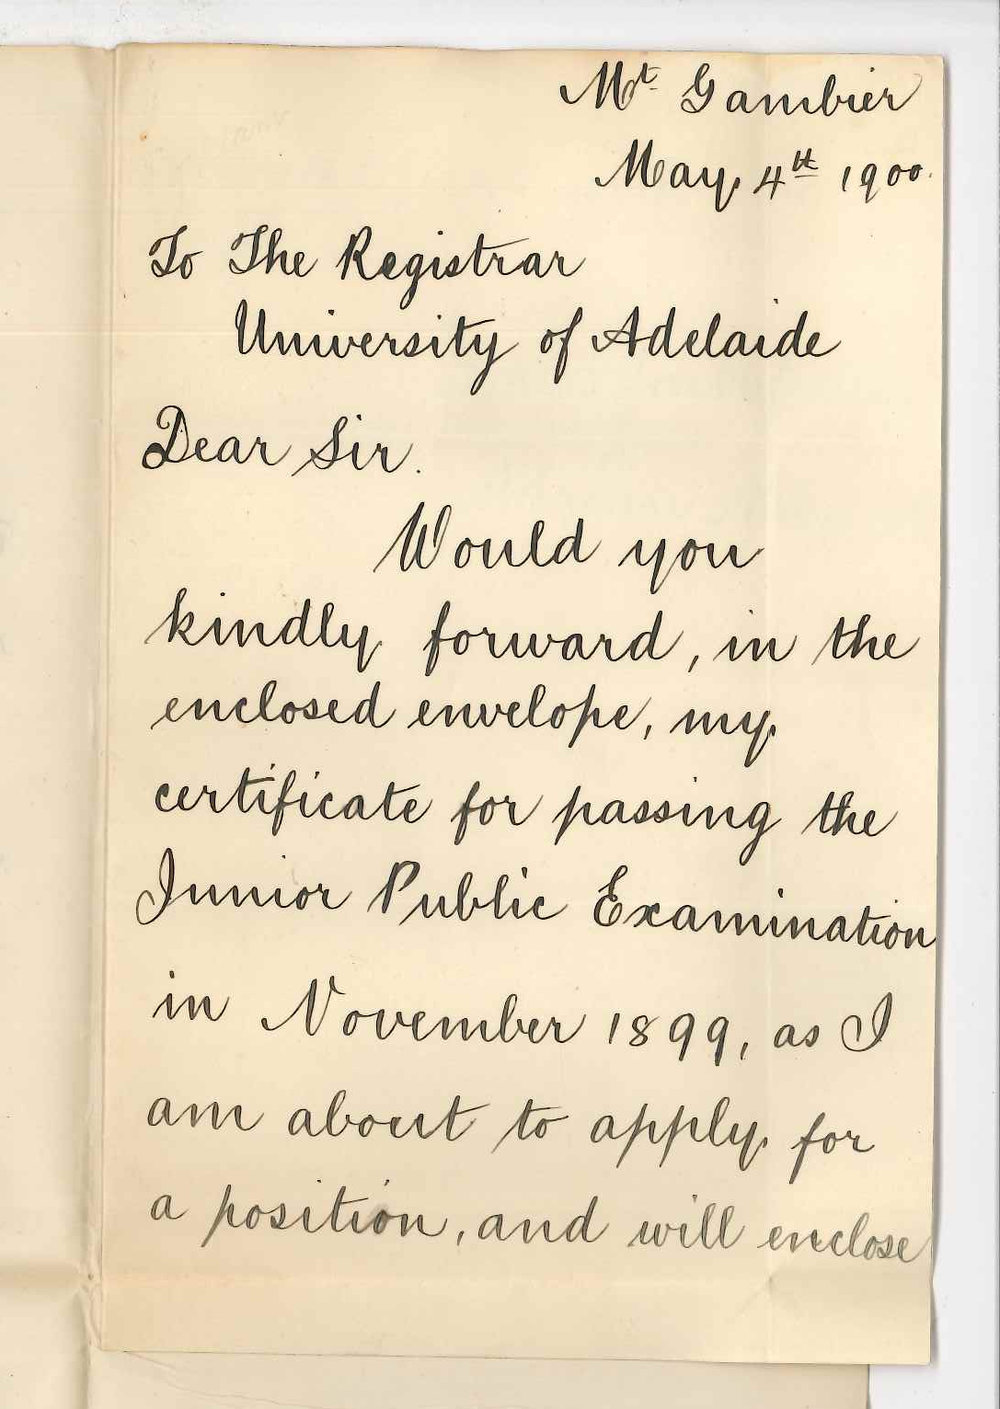 Mt Gambier
May 4th 1900.
To The Registrar
University of Adelaide
Dear Sir.
Would you
kindly forward, in the
enclosed envelope, my
certificate for passing the
Junior Public Examination
in November 1899, as I
am about to apply for
a position, and will enclose